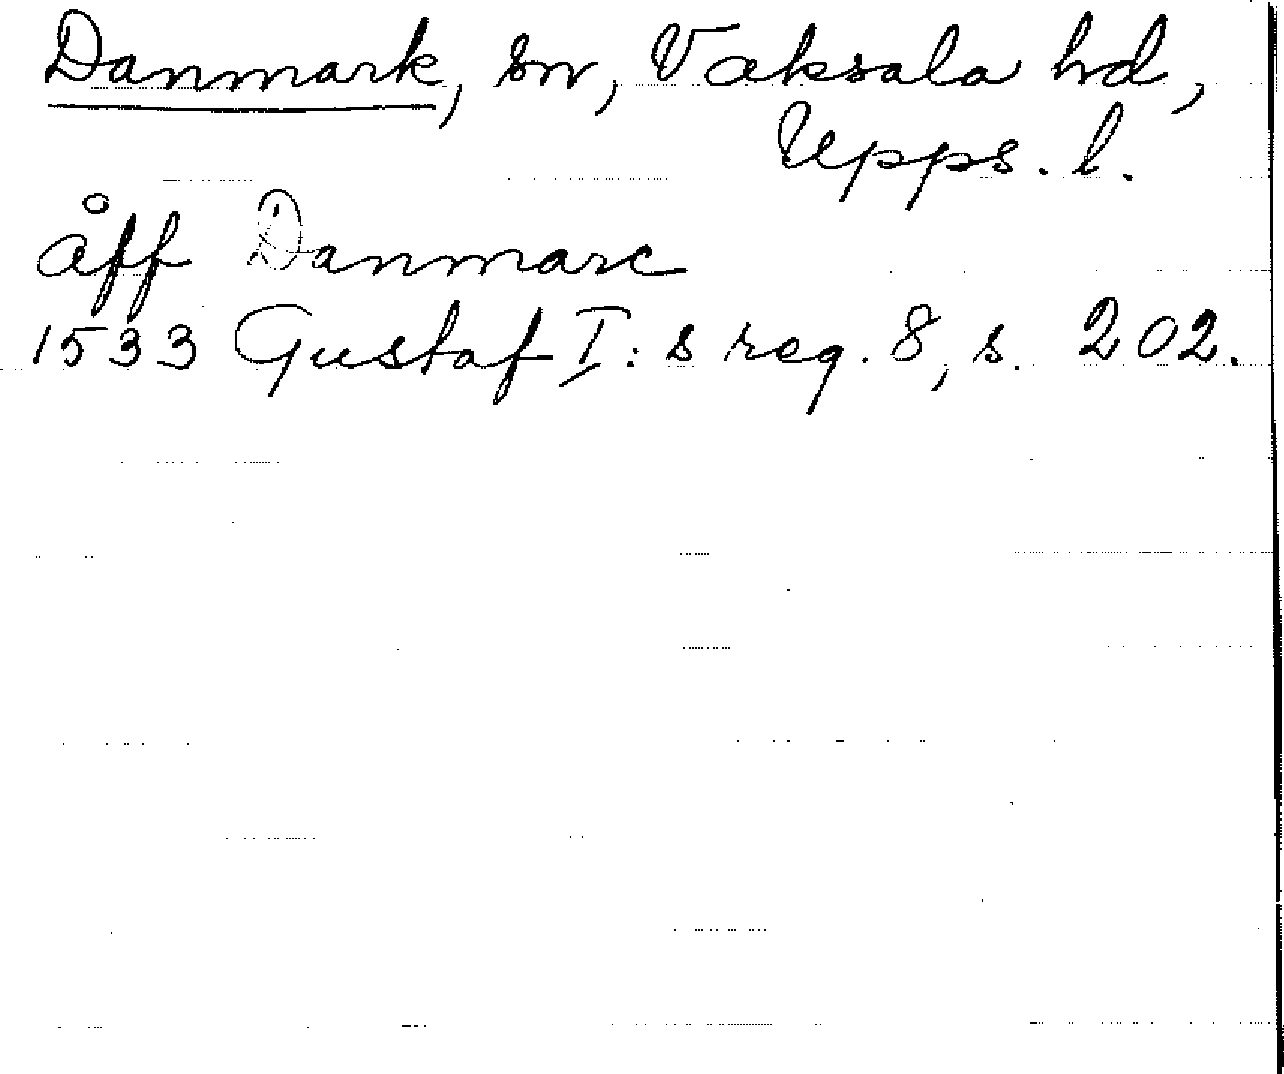 Danmark, sn, Vaksala hd,
Upps. l.
åff Danmarc
1533 Gustaf I: s reg. 8, s. 202.